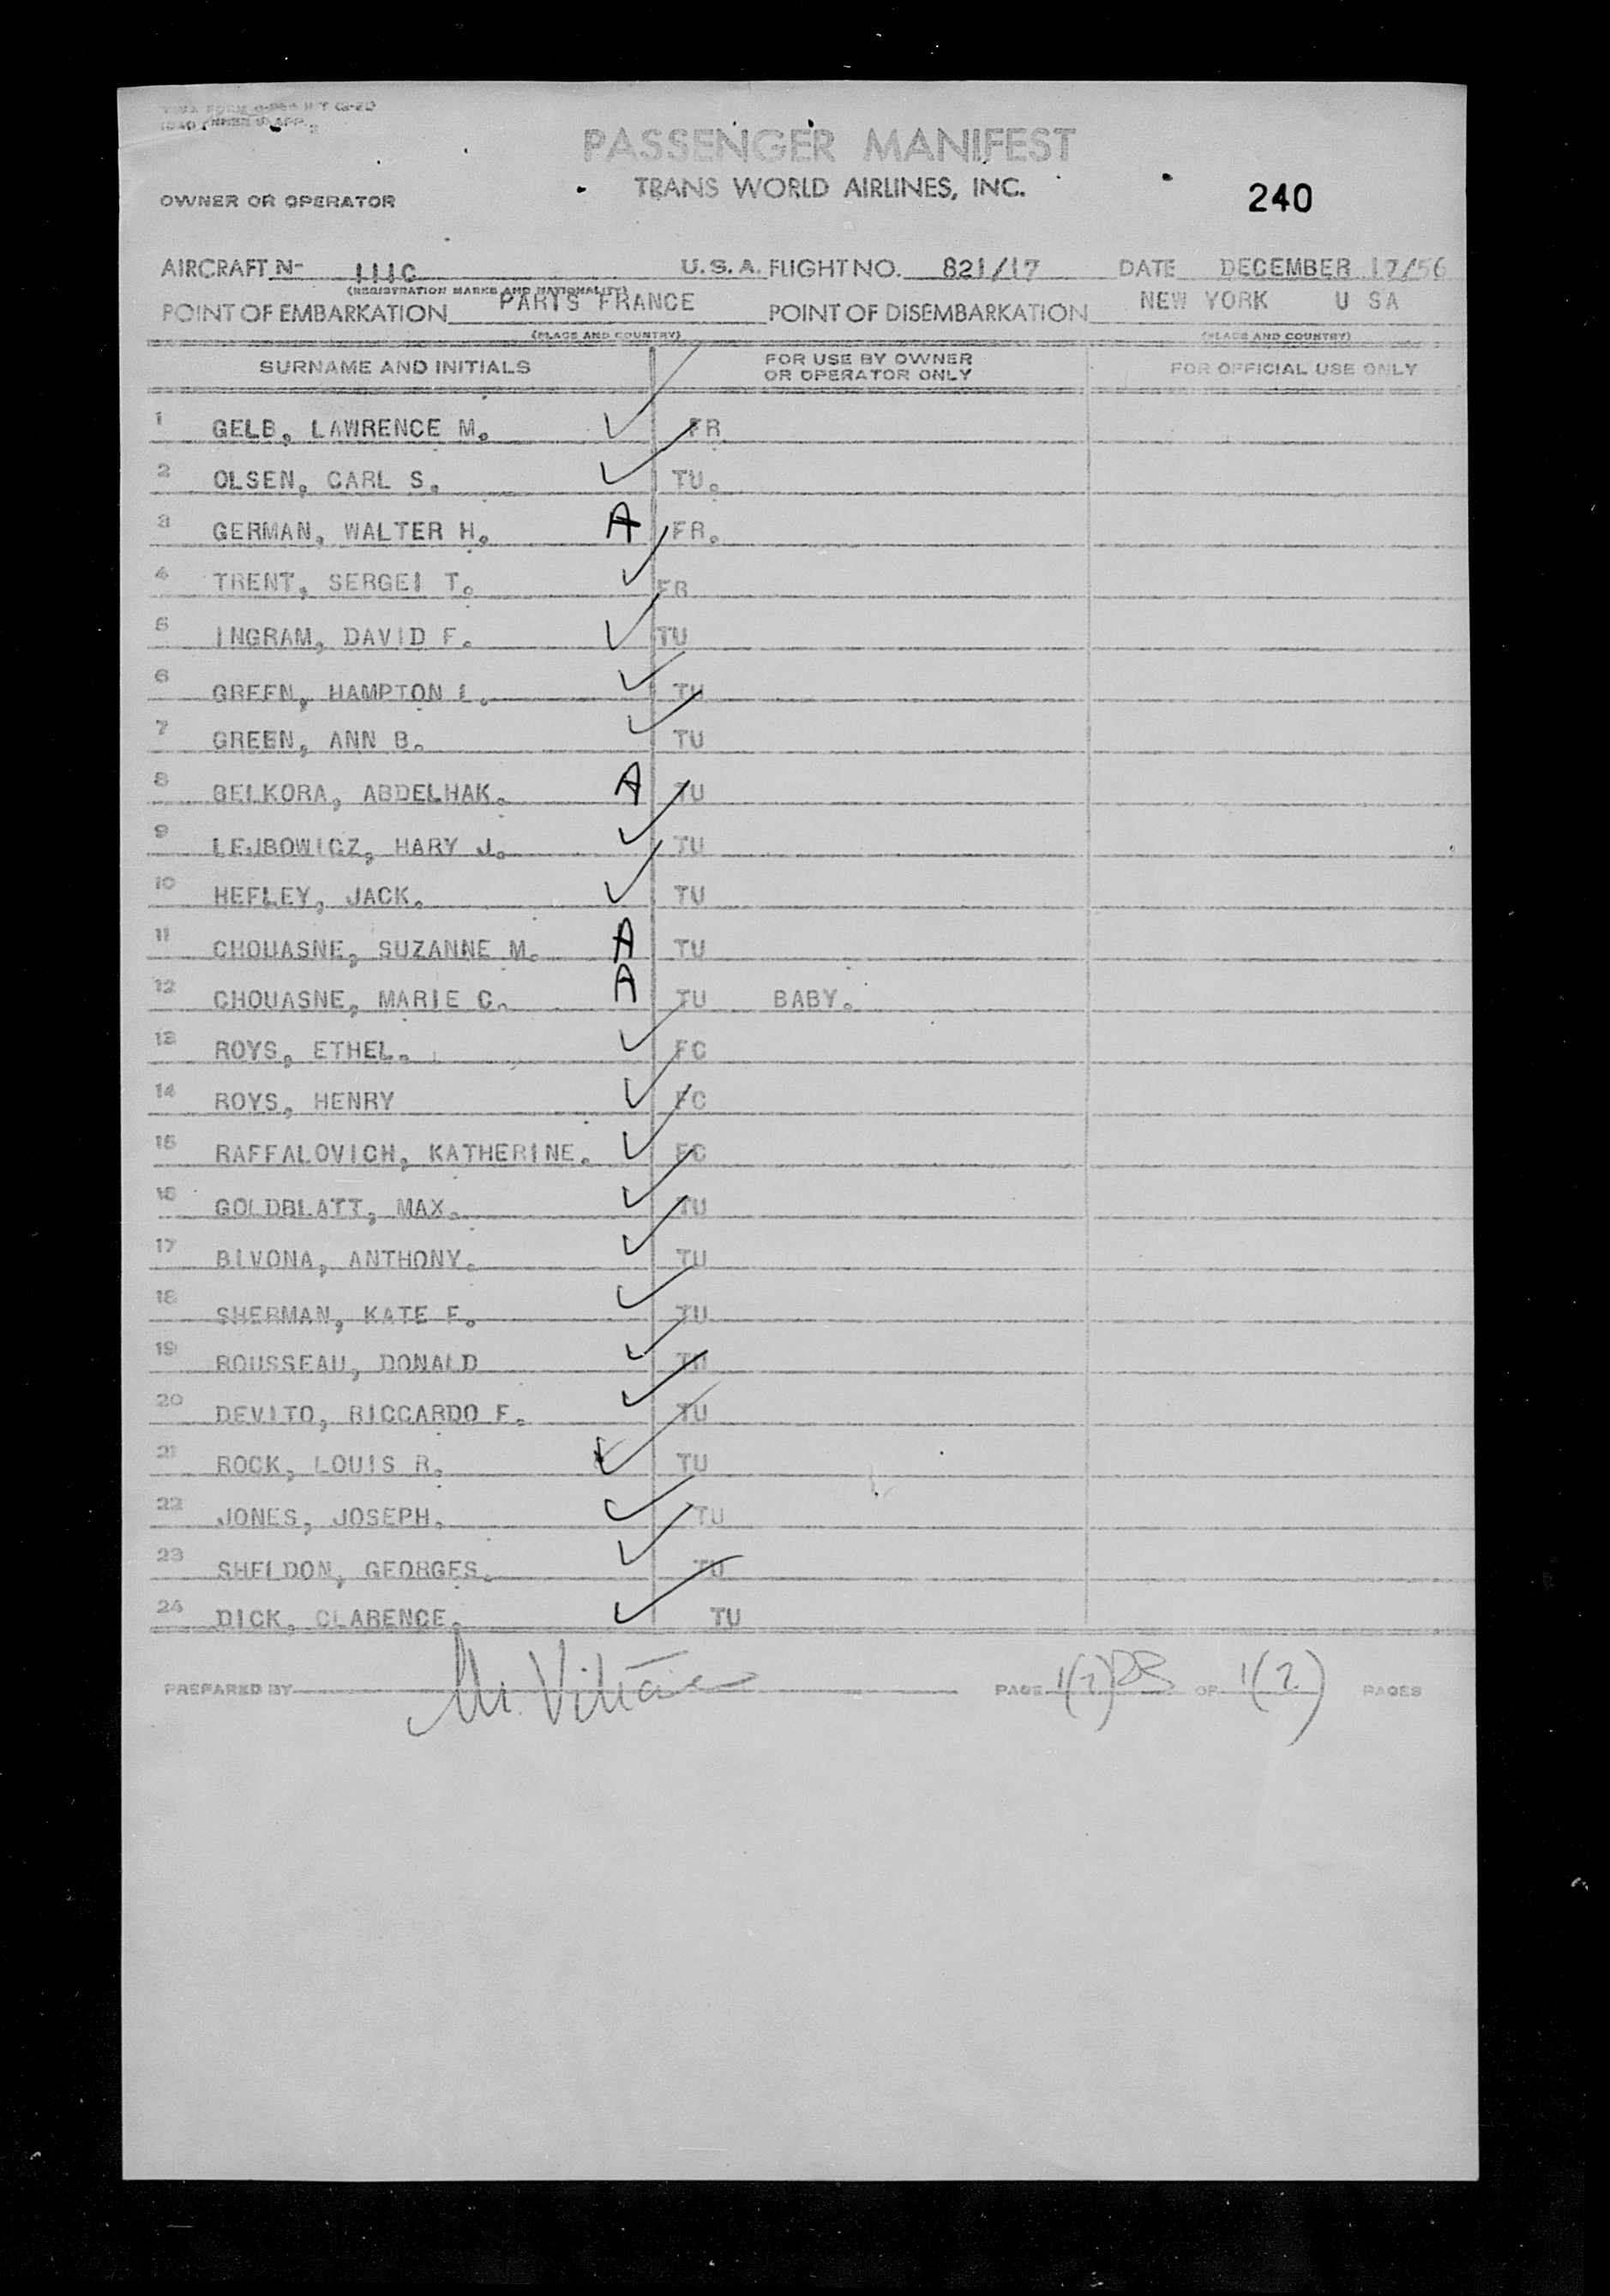 PASSENGER MANIFEST
TRANS WORLD AIRLINES, INC.
240
OWNER OR OPERATOR
AIRCRAFT N- 111C U.S.A. FLIGHT NO. 821/17 DATE DECEMBER 17/56
(REGISTRATION MARKS AND NATIONALITY)
POINT OF EMBARKATION PARIS FRANCE POINT OF DISEMBARKATION NEW YORK U SA
(PLACE AND COUNTRY) (PLACE AND COUNTRY)
SURNAME AND INITIALS FOR USE BY OWNER OR OPERATOR ONLY FOR OFFICIAL USE ONLY
1 GELB, LAWRENCE M. ✓ FR
2 OLSEN, CARL S. ✓ TU.
3 GERMAN, WALTER H. A FR.
4 TRENT, SERGEI T. ✓ FR
5 INGRAM, DAVID F. ✓ TU
6 GREEN, HAMPTON L. ✓ TU
7 GREEN, ANN B. ✓ TU
8 BELKORA, ABDELHAK. A TU
9 LEJBOWICZ, HARY J. ✓ TU
10 HEFLEY, JACK. ✓ TU
11 CHOUASNE, SUZANNE M. A TU
12 CHOUASNE, MARIE C. A TU BABY.
13 ROYS, ETHEL. ✓ FC
14 ROYS, HENRY ✓ FC
15 RAFFALOVICH, KATHERINE. ✓ FC
16 GOLDBLATT, MAX. ✓ TU
17 BIVONA, ANTHONY. ✓ TU
18 SHERMAN, KATE F. ✓ TU
19 ROUSSEAU, DONALD ✓ TU
20 DEVITO, RICCARDO F. ✓ TU
21 ROCK, LOUIS R. ✓ TU
22 JONES, JOSEPH. ✓ TU
23 SHELDON, GEORGES. ✓ TU
24 DICK, CLARENCE. ✓ TU
PREPARED BY M. PAGE 1(2) OF 1(2) PAGES